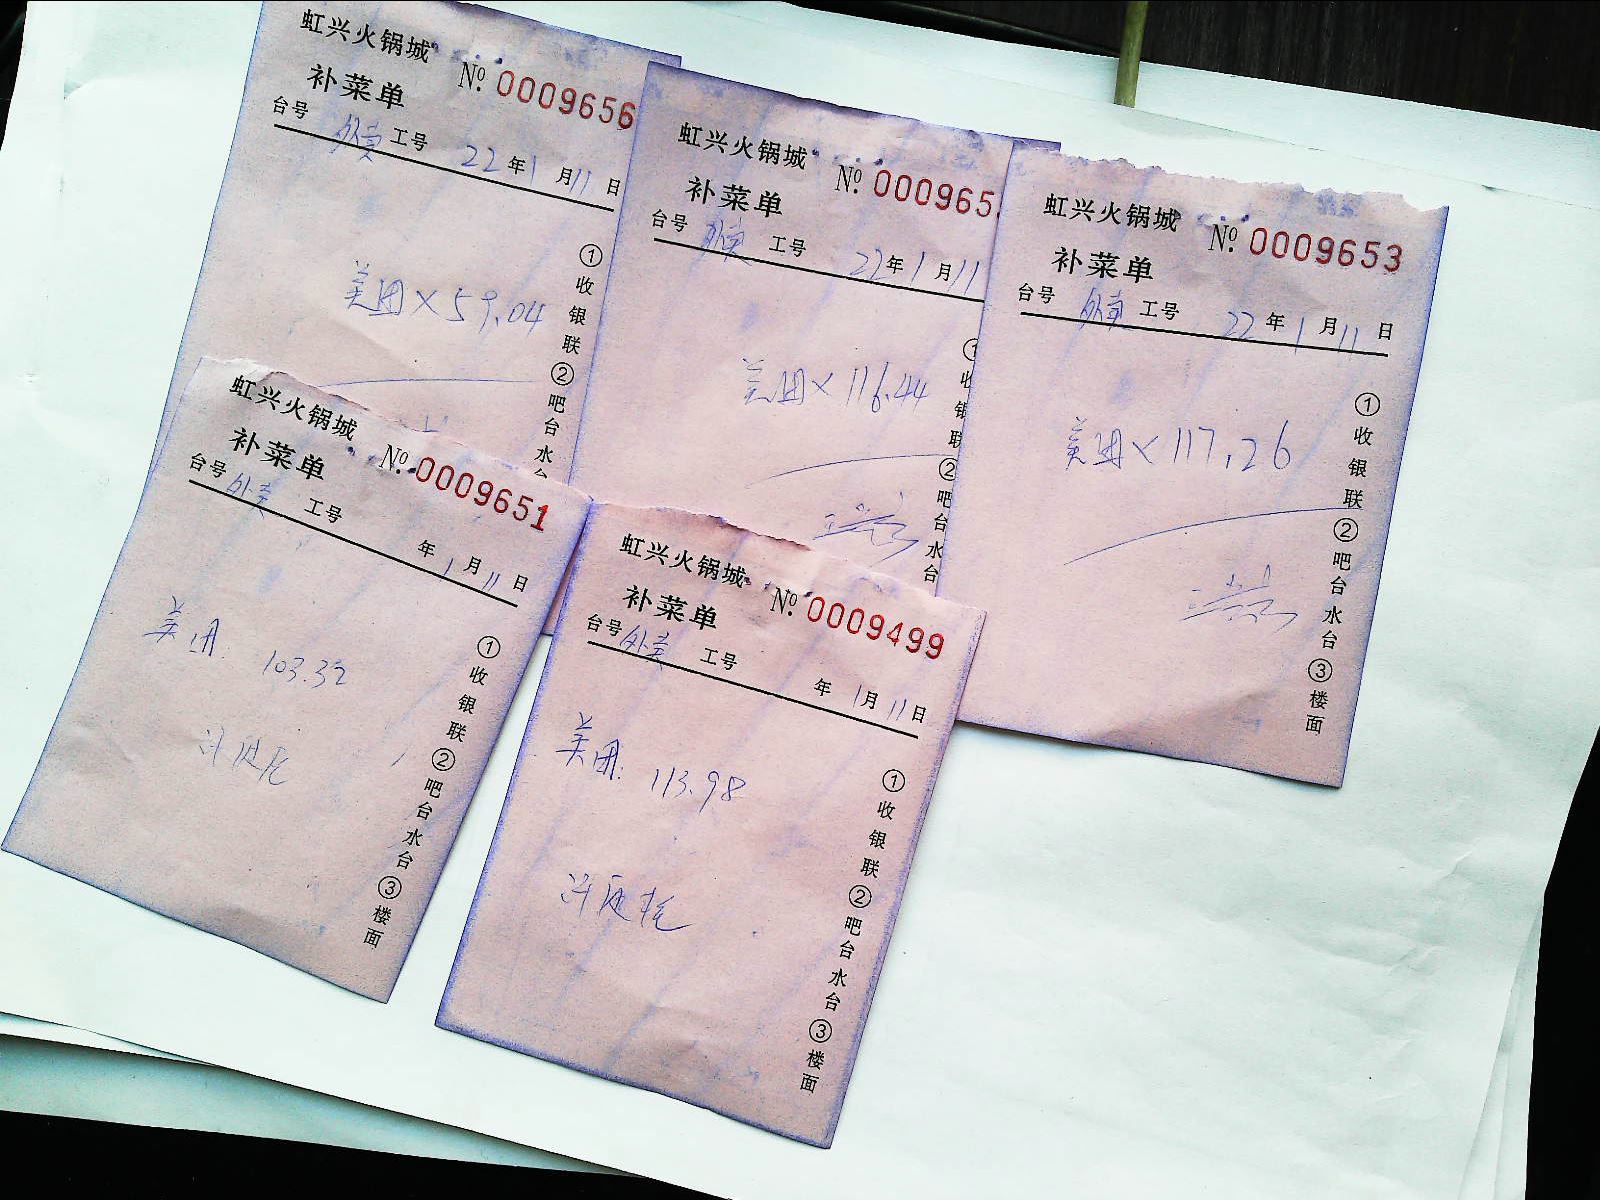 虹兴火锅城
补菜单
No. 0009656
台号 外卖 工号 22年1月11日
美团×59.04
①收银联②吧台水台
虹兴火锅城
补菜单
No. 000965
台号 外卖 工号 22年1月11
美团×116.44
①收银联②吧台水台
虹兴火锅城
补菜单
No. 0009653
台号 外卖 工号 22年1月11日
美团×117.26
①收银联②吧台水台③楼面
虹兴火锅城
补菜单
No. 0009651
台号 外卖 工号 年1月11日
美团: 103.32
①收银联②吧台水台③楼面
虹兴火锅城
补菜单
No. 0009499
台号 外卖 工号 年1月11日
美团: 113.98
①收银联②吧台水台③楼面